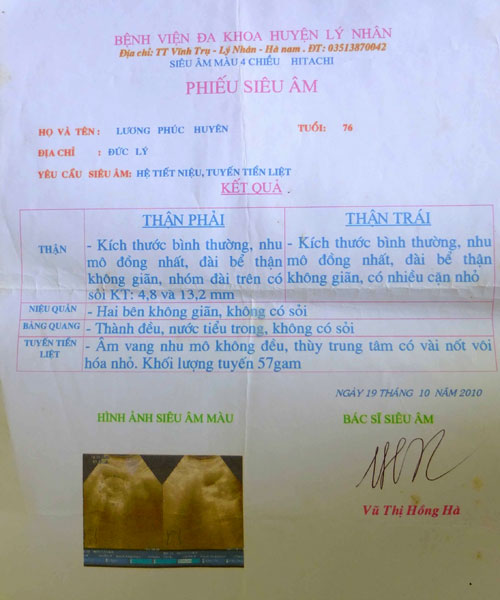 BỆNH VIỆN ĐA KHOA HUYỆN LÝ NHÂN
Địa chỉ: TT Vĩnh Trụ - Lý Nhân - Hà nam . ĐT: 03513870042
SIÊU ÂM MÀU 4 CHIỀU HITACHI
PHIẾU SIÊU ÂM
HỌ VÀ TÊN : LƯƠNG PHÚC HUYÊN TUỔI: 76
ĐỊA CHỈ : ĐỨC LÝ
YÊU CẦU SIÊU ÂM: HỆ TIẾT NIỆU, TUYẾN TIỀN LIỆT
KẾT QUẢ .
THẬN PHẢI THẬN TRÁI
THẬN
- Kích thước bình thường, nhu
mô đồng nhất, đài bể thận
không giãn, nhóm đài trên có
sỏi KT: 4,8 và 13,2 mm
- Kích thước bình thường, nhu
mô đồng nhất, đài bể thận
không giãn, có nhiều cặn nhỏ
NIỆU QUẢN - Hai bên không giãn, không có sỏi
BÀNG QUANG - Thành đều, nước tiểu trong, không có sỏi
TUYẾN TIỀN LIỆT
- Âm vang nhu mô không đều, thùy trung tâm có vài nốt vôi
hóa nhỏ. Khối lượng tuyến 57gam
NGÀY 19 THÁNG 10 NĂM 2010
HÌNH ẢNH SIÊU ÂM MÀU BÁC SĨ SIÊU ÂM
Vũ Thị Hồng Hà